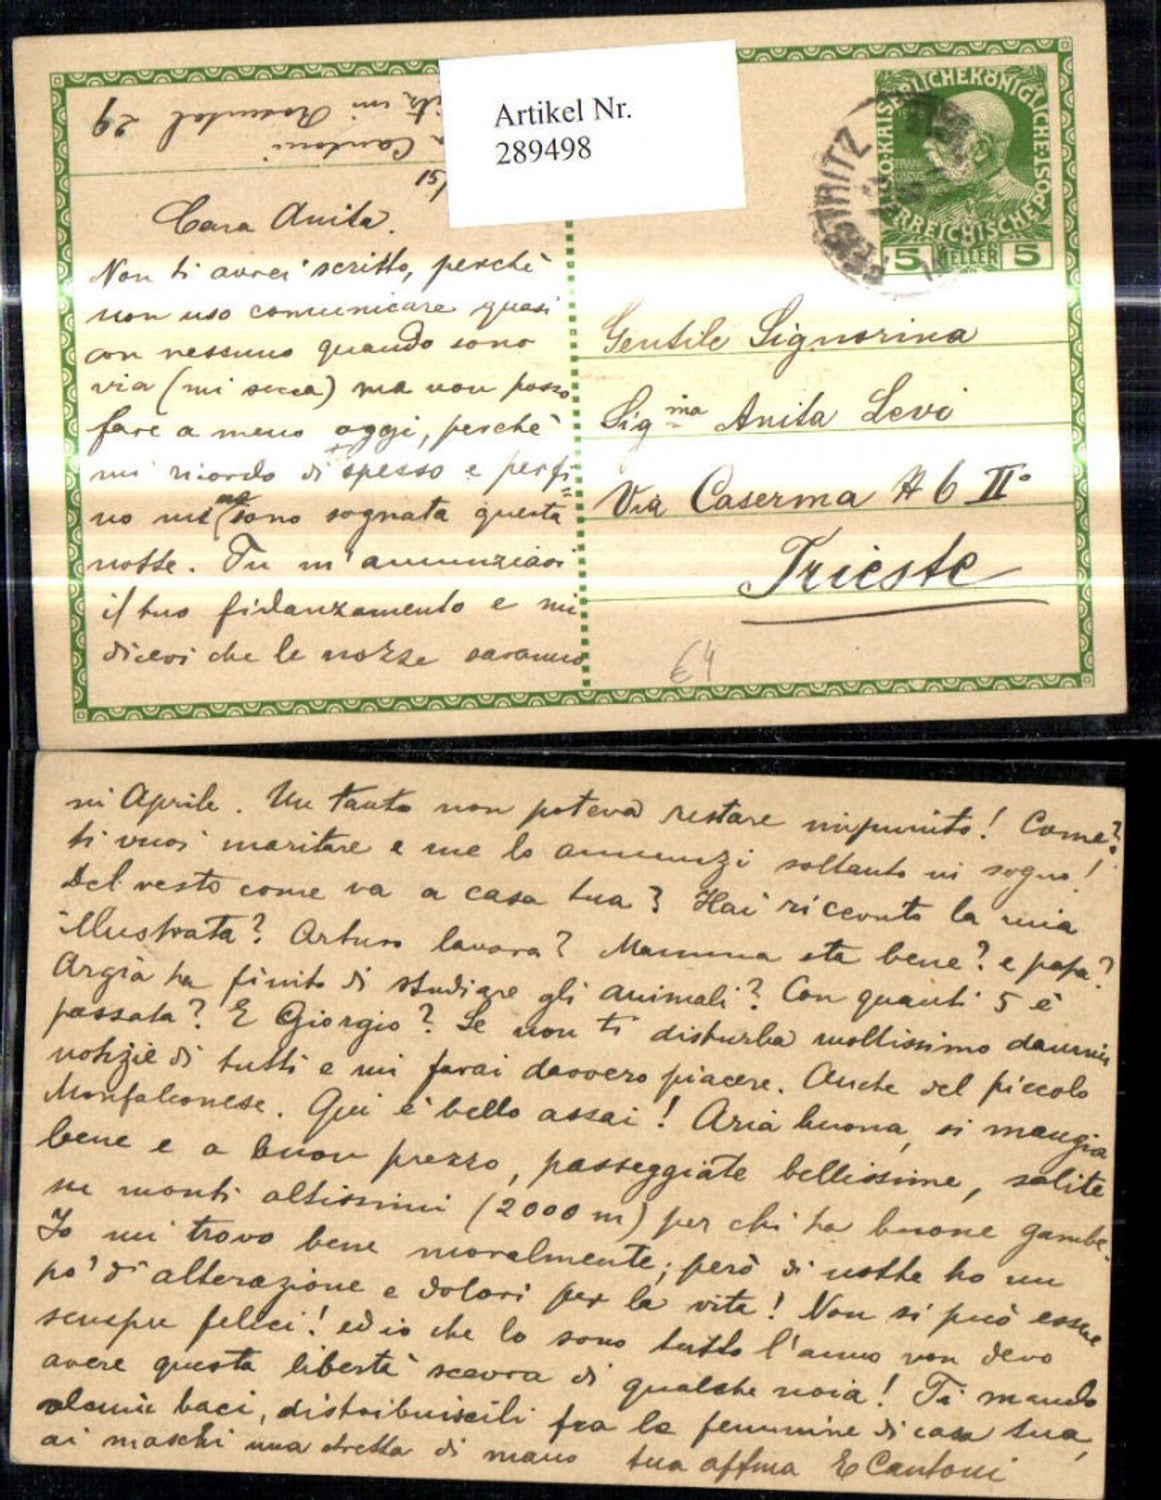 Artikel Nr.
289498
Cantoni
Rosental 29
KAISERLICHE KÖNIGLICHE ÖSTERREICHISCHE POST
5 HELLER 5
Cara Anita.
Non ti avrei scritto, perchè
non uso comunicare quasi
con nessuno quando sono
via (mi secca) ma non posso
fare a meno oggi, perchè
mi ricordo di spesso e perfi=
no me sono sognata questa
notte. Tu m'annunziavi
il tuo fidanzamento e mi
dicevi che le nozze saranno
Gentile Signorina
Sig.ina Anita Levi
Via Caserma № 6 II°
Trieste
€4
in Aprile. Un tanto non poteva restare impunito! Come?
ti vuoi maritare e me lo annunzi soltanto in sogno!
Del resto come va a casa tua? Hai ricevuto la mia
illustrata? Arturo lavora? Mamma sta bene? e papa?
Argia ha finito di studiare gli animali? Con quanti 5 è
passata? E Giorgio? Se non ti disturba moltissimo dammi
notizie di tutti e mi farai davvero piacere. Anche del piccolo
Monfalconese. Qui è bello assai! Aria buona, si mangia
bene e a buon prezzo, passeggiate bellissime, salite
su monti altissimi (2000 m) per chi ha buone gambe.
Io mi trovo bene moralmente; però di notte ho un
po' di alterazione e dolori per la vita! Non si può essere
sempre felici! ed io che lo sono tutto l'anno non devo
avere questa libertà scevra di qualche noia! Ti mando
alcuni baci, distribuiscili fra le femmine di casa tua,
ai maschi una stretta di mano tua affma E Cantoni